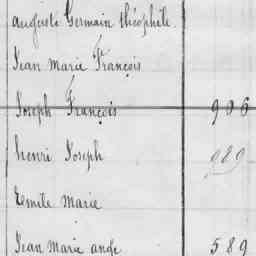 auguste Germain théophile.
Jean Marie François
Joseph François 906
henri Joseph 989
Emile Marie
Jean Marie ange 589